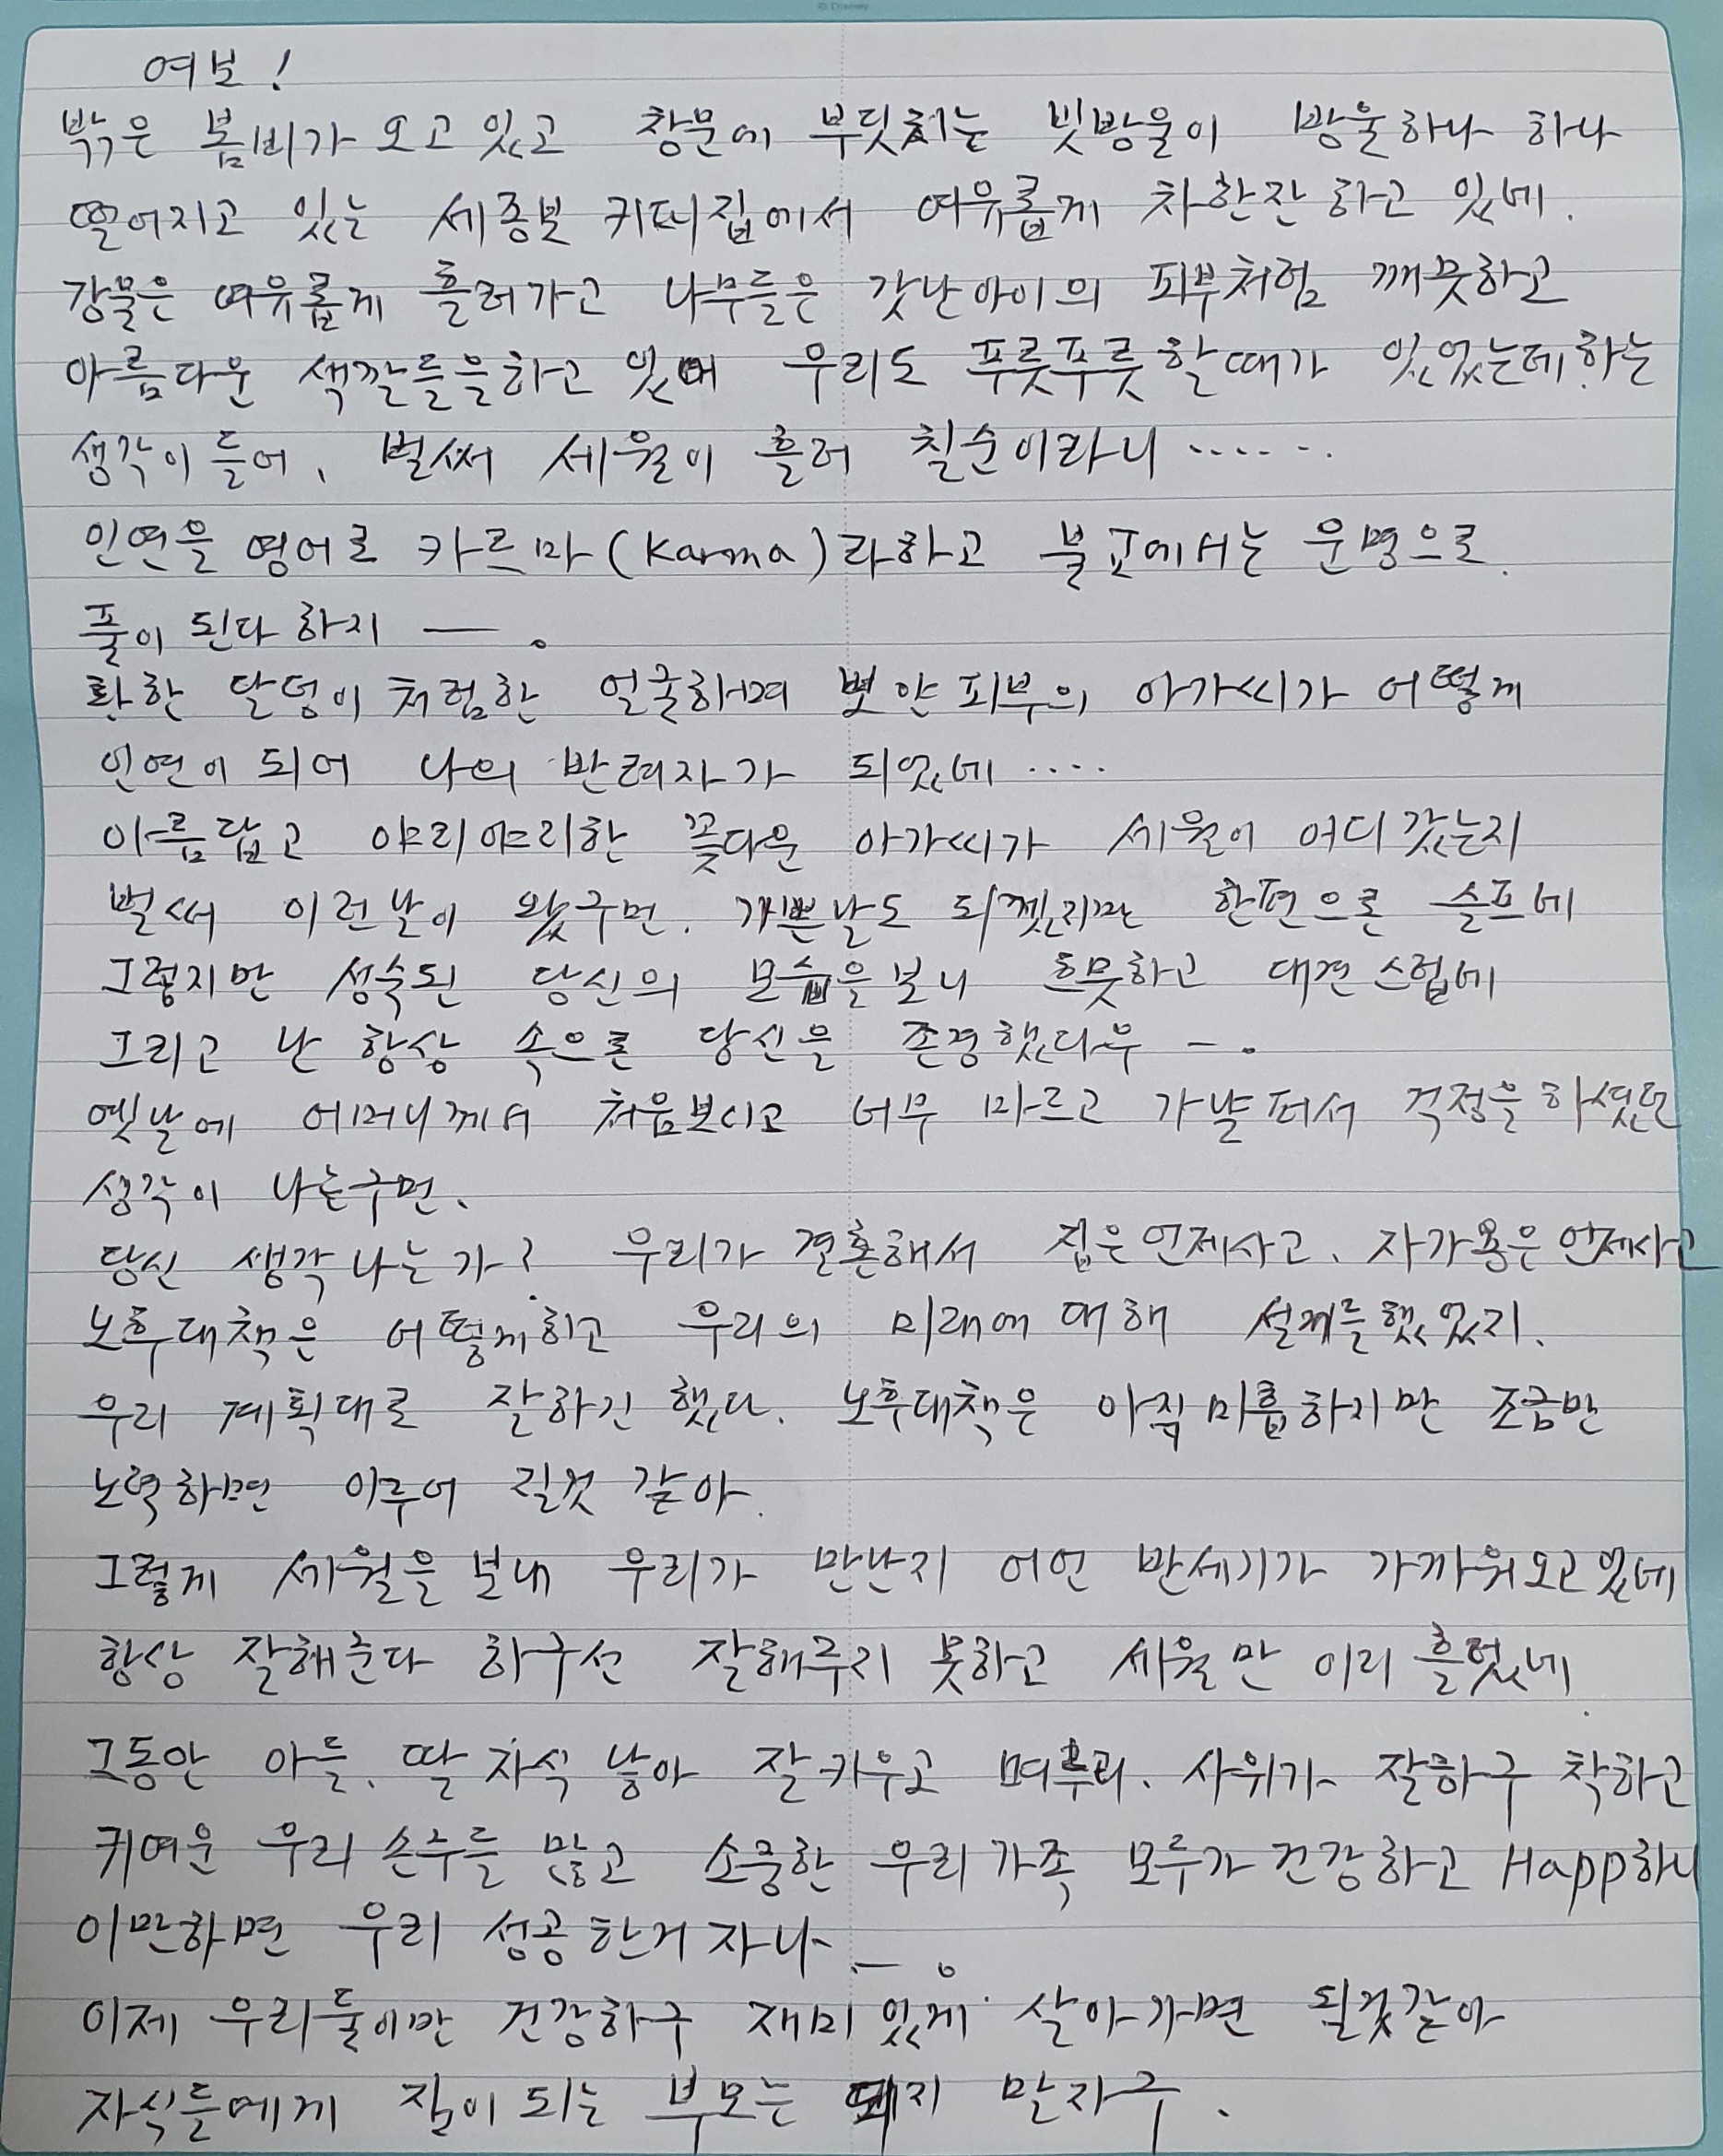 여보!
밖은 봄비가 오고 있고 창문에 부딧치는 빗방울이 방울하나 하나
떨어지고 있는 세종보 커피집에서 여유롭게 차한잔 하고 있네.
강물은 여유롭게 흘러가고 나무들은 갓난아이의 피부처럼 깨끗하고
아름다운 색깔들을하고 있어 우리도 푸릇푸릇 할때가 있었는데.하는
생각이 들어. 벌써 세월이 흘러 칠순이라니 ......
인연을 영어로 카르마(Karma)라하고 불교에서는 운명으로
풀이 된다 하지 —.
환한 달덩이 처럼한 얼굴하며 뽀얀피부의 아가씨가 어떻게
인연이 되어 나의 반려자가 되었네 ....
아름답고 야리야리한 꽃다운 아가씨가 세월이 어디갔는지
벌써 이런날이 왔구먼. 기쁜날도 되겠지만 한편으론 슬프네
그렇지만 성숙된 당신의 모습을보니 흐뭇하고 대견스럽네
그리고 난 항상 속으론 당신을 존경했다우 —.
옛날에 어머니께서 처음보시고 너무 마르고 가냘퍼서 걱정을 하셨던
생각이 나는구먼.
당신 생각나는가? 우리가 결혼해서 집은언제사고. 자가용은언제사고
노후대책은 어떻게하고 우리의 미래에 대해 설계를했었지.
우리 계획대로 잘하긴 했다. 노후대책은 아직미흡하지만 조금만
노력하면 이루어 질것 같아.
그렇게 세월을 보내 우리가 만난지 어언 반세기가 가까워오고있네
항상 잘해준다 하구선 잘해주지 못하고 세월만 이리 흘렀네.
그동안 아들. 딸 자식 낳아 잘키우고 며루리. 사위가 잘하구 착하고
귀여운 우리 손주들 많고 소중한 우리가족 모두가 건강하고 Happ하니
이만하면 우리 성공한거 자나 —.
이제 우리둘이만 건강하구 재미있게 살아가면 될것같아
자식들에게 짐이되는 부모는 돼지 말자구.